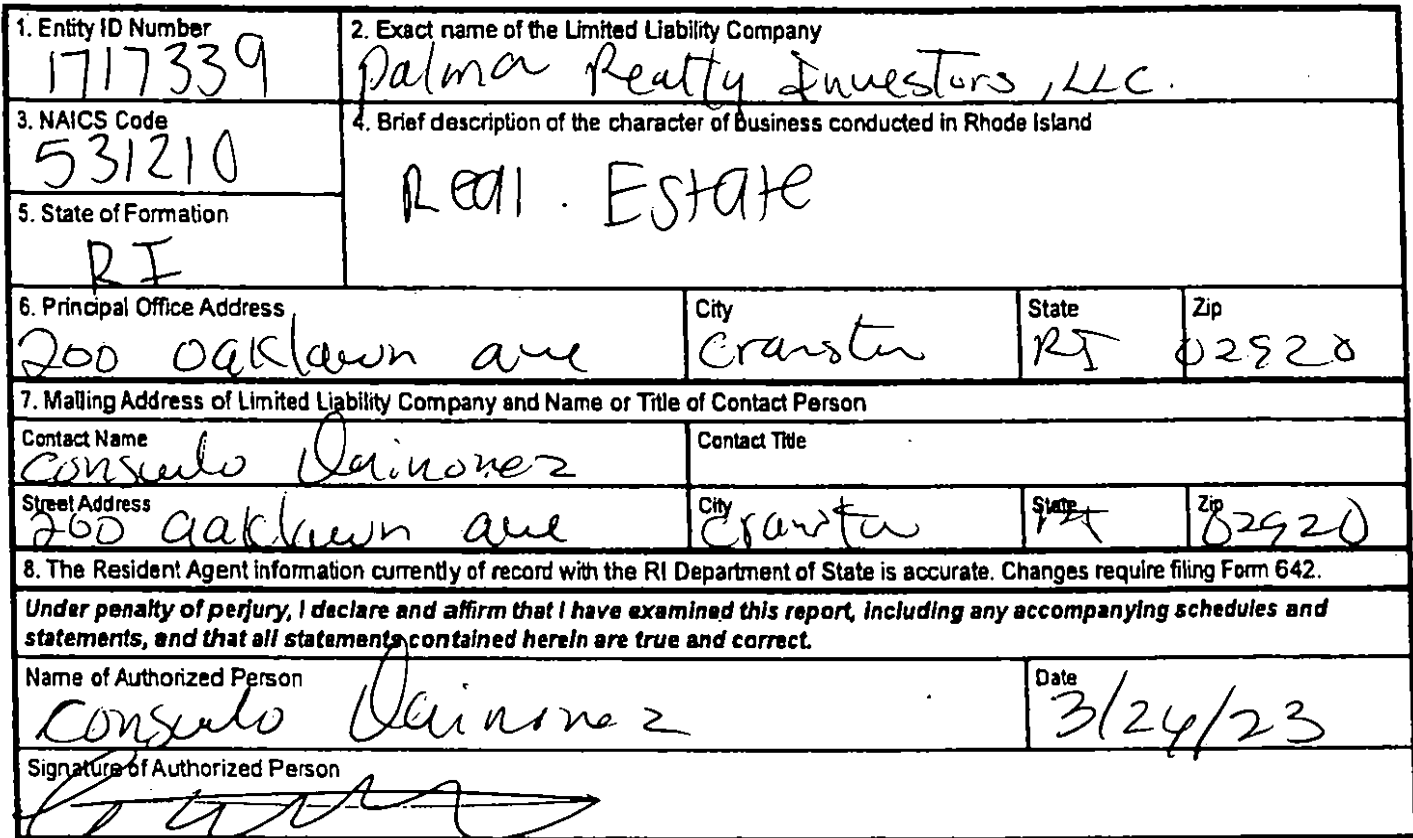 1. Entity ID Number
1717339
2. Exact name of the Limited Liability Company
Palma Realty Investors, LLC.
3. NAICS Code
531210
4. Brief description of the character of business conducted in Rhode Island
Real. Estate
5. State of Formation
RI
6. Principal Office Address
200 oaklawn ave
City
Cranston
State
RI
Zip
02920
7. Mailing Address of Limited Liability Company and Name or Title of Contact Person
Contact Name
Consuelo Quinonez
Contact Title
Street Address
200 oaklawn ave
City
Cranston
State
RI
Zip
02920
8. The Resident Agent information currently of record with the RI Department of State is accurate. Changes require filing Form 642.
Under penalty of perjury, I declare and affirm that I have examined this report, including any accompanying schedules and
statements, and that all statements contained herein are true and correct.
Name of Authorized Person
Consuelo Quinonez
Date
3/24/23
Signature of Authorized Person